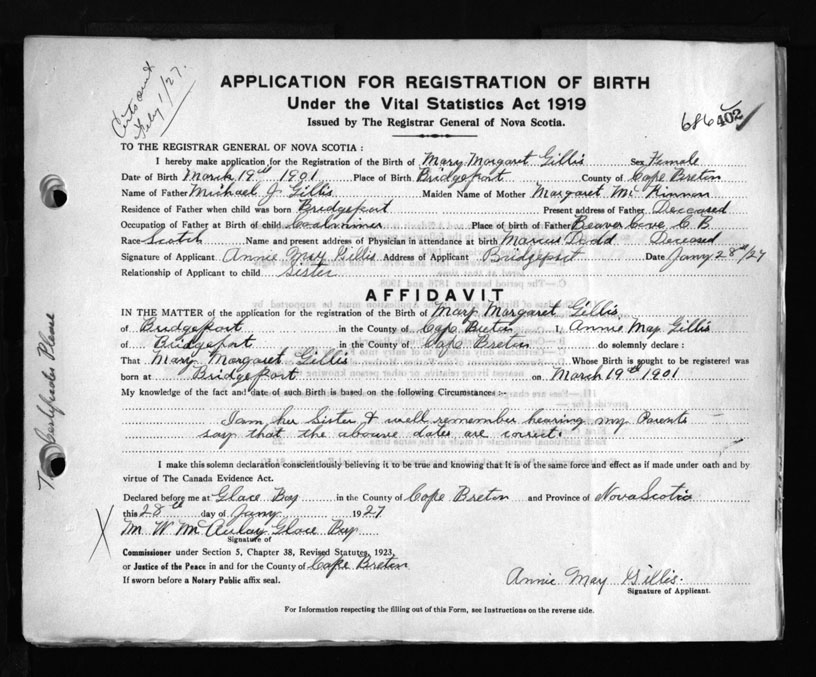 Certs sent
Feby 1/27.
APPLICATION FOR REGISTRATION OF BIRTH
Under the Vital Statistics Act 1919
Issued by The Registrar General of Nova Scotia.
686 402
TO THE REGISTRAR GENERAL OF NOVA SCOTIA :
I hereby make application for the Registration of the Birth of Mary Margaret Gillis Sex Female
Date of Birth March 19th 1901 Place of Birth Bridgeport County of Cape Breton
Name of Father Michael J. Gillis Maiden Name of Mother Margaret McKinnon
Residence of Father when child was born Bridgeport Present address of Father Deceased
Occupation of Father at Birth of child Coalminer Place of birth of Father Beaver Cove, C. B.
Race Scotch Name and present address of Physician in attendance at birth Marcus Dodd Deceased
Signature of Applicant Annie May Gillis Address of Applicant Bridgeport Date Jany 28th/27
Relationship of Applicant to child Sister
AFFIDAVIT
IN THE MATTER of the application for the registration of the Birth of Mary Margaret Gillis
of Bridgeport in the County of Cape Breton I, Annie May Gillis
of Bridgeport in the County of Cape Breton do solemnly declare :
That Mary Margaret Gillis Whose Birth is sought to be registered was
born at Bridgeport on March 19th 1901
My knowledge of the fact and date of such Birth is based on the following Circumstances :-
I am her Sister & well remember hearing my Parents
say that the above dates are correct.
I make this solemn declaration conscientiously believing it to be true and knowing that it is of the same force and effect as if made under oath and by
virtue of The Canada Evidence Act.
Declared before me at Glace Bay in the County of Cape Breton and Province of Nova Scotia
this 28th day of Jany 1927
M. W. McAulay Glace Bay
Signature of
Commissioner under Section 5, Chapter 38, Revised Statutes, 1923,
or Justice of the Peace in and for the County of Cape Breton
If sworn before a Notary Public affix seal.
Annie May Gillis.
Signature of Applicant.
For Information respecting the filling out of this Form, see Instructions on the reverse side.
Certificates Please